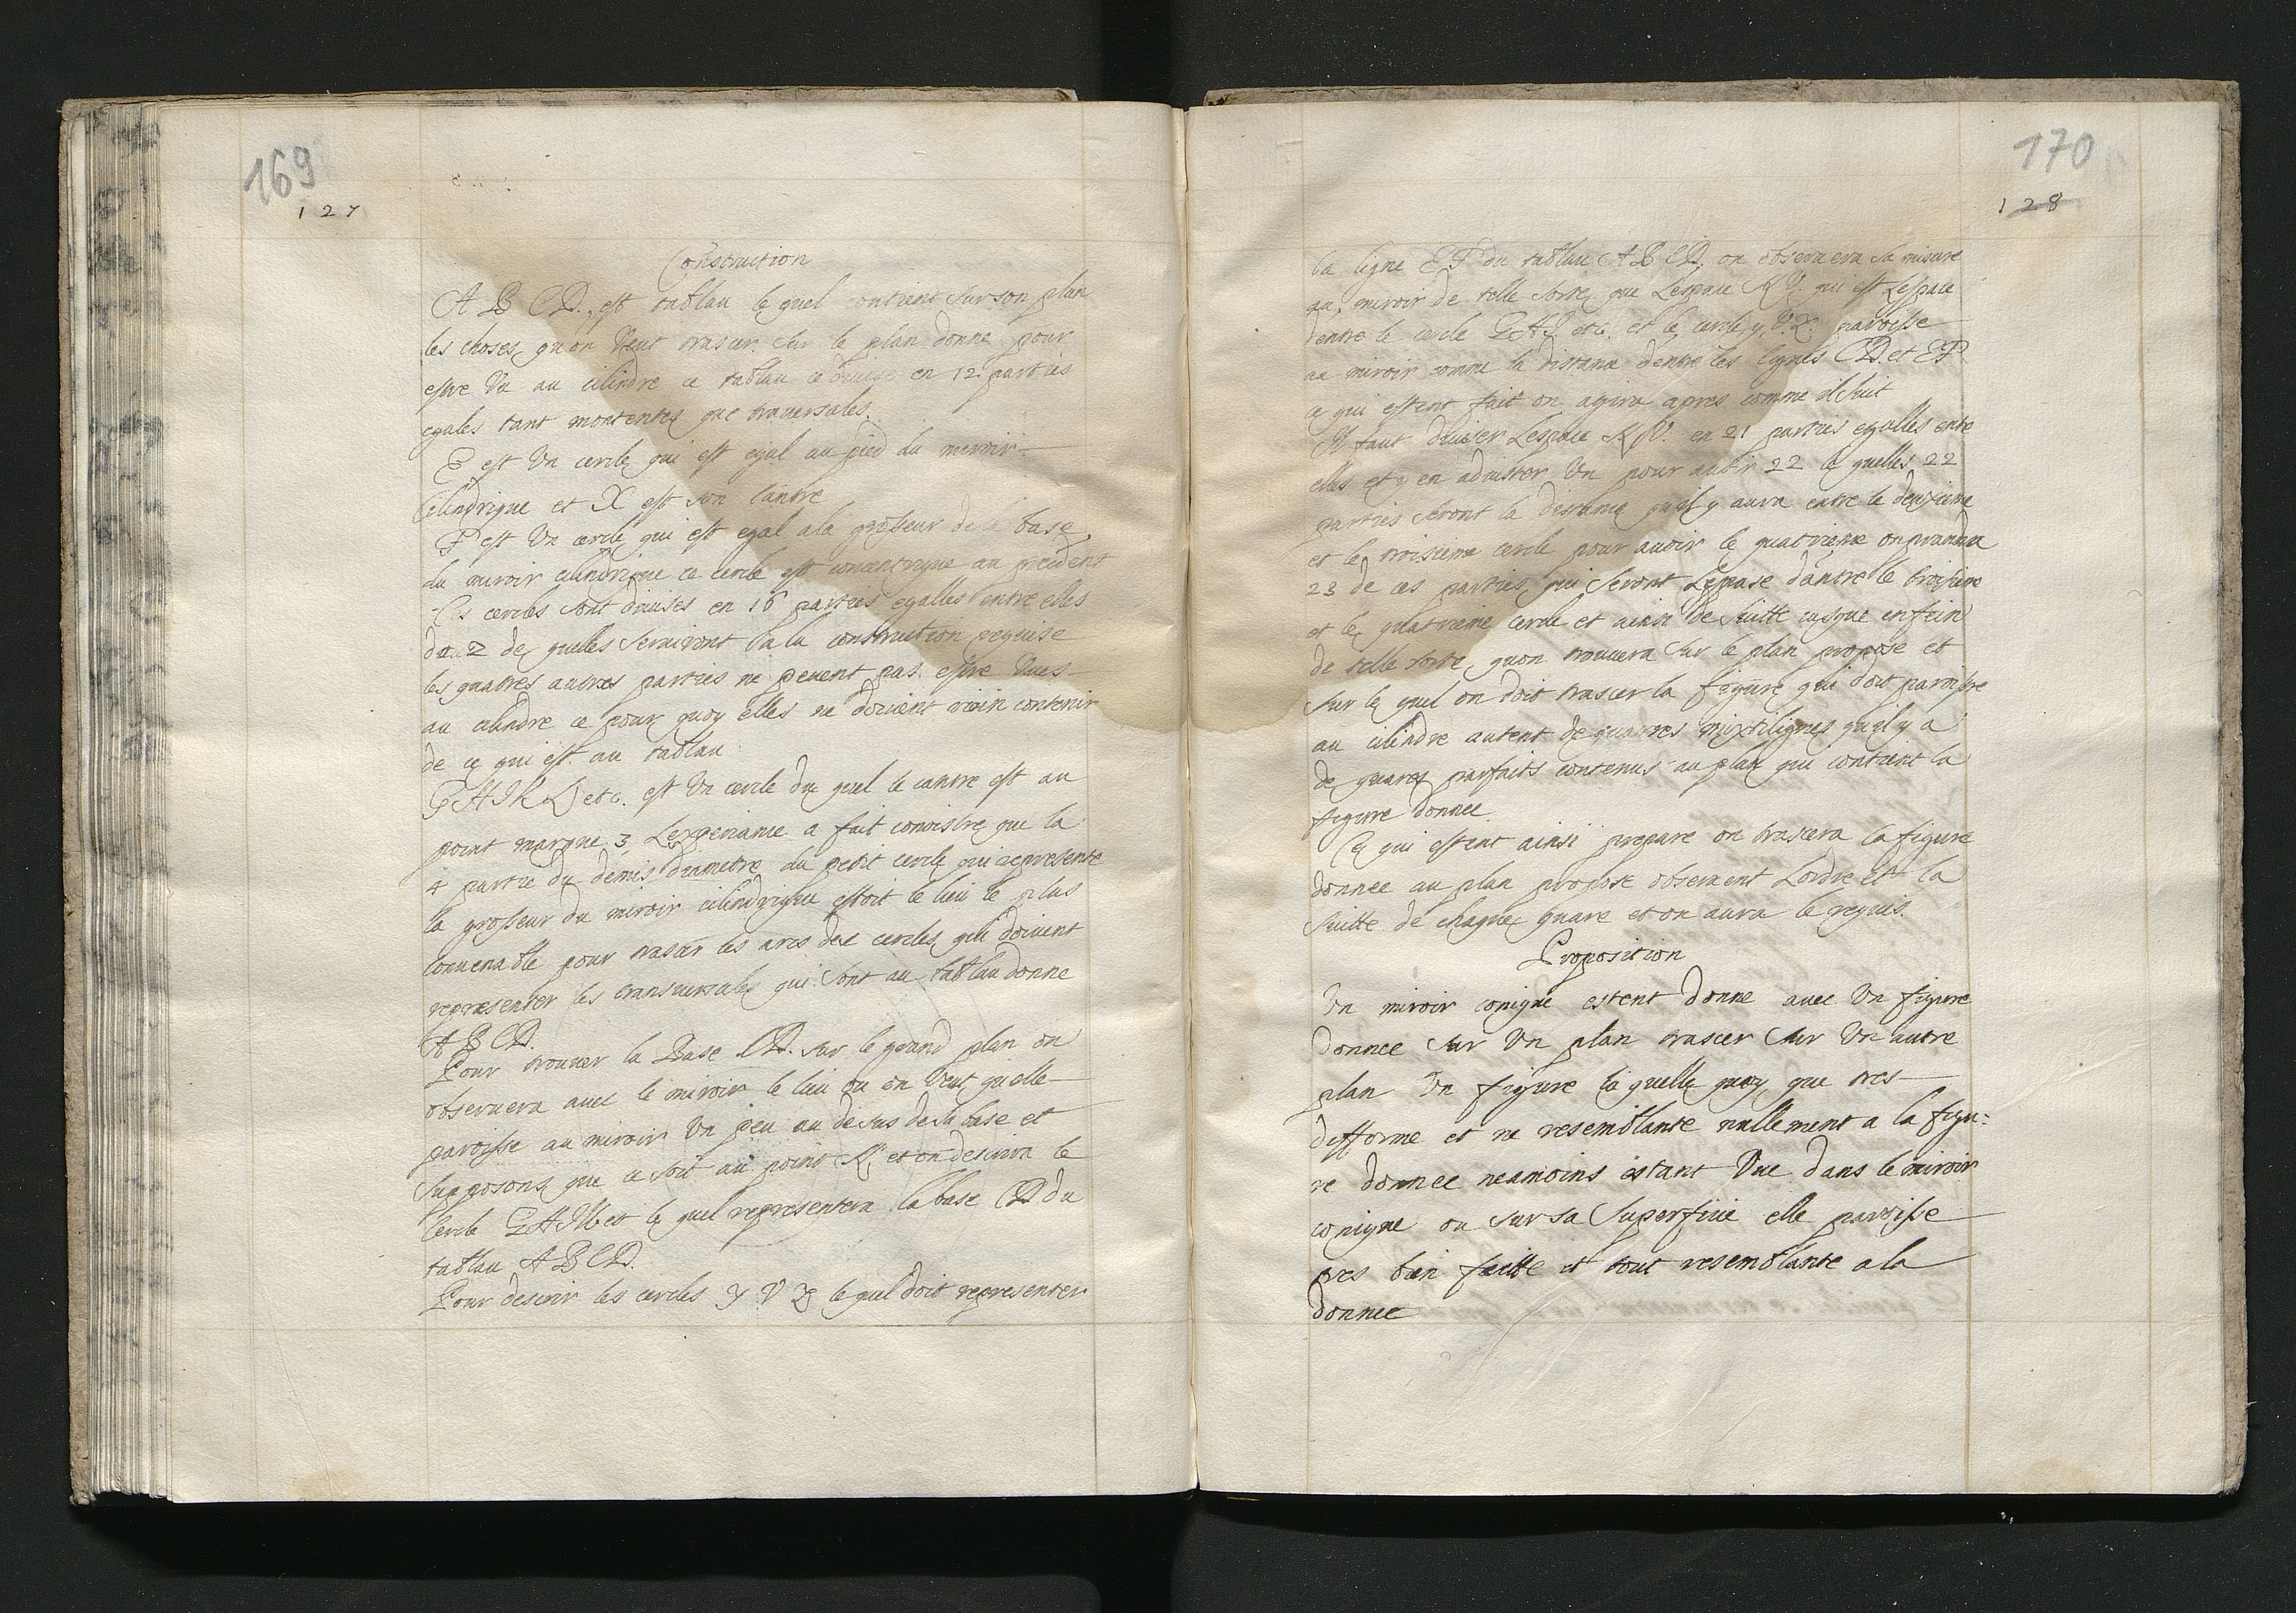 169
127
Construction
A B C D. est tablau le quel contient sur son plan
les choses quon veut trascer sur le plan donne pour
estre vu au cilindre ce tablau ce divise en 12 parties
egales tant montentes que traversales.
E est un cercle qui est egal au pied du meroir
Cilindrique et X est son cantre
F est un cercle qui est egal a la grosseur de la base
du miroir cilindrique ce cercle est concentrique au precedent
Ces cercles sont divises en 16 parties egalles entre elles
douz desquelles serviront la la construction requise
les quatres autres parties ne peuent pas estre vues
au cilindre ce pour quoy elles ne doivent riein contenir
de ce qui est au tablau
G H I K L etc. est un cercle du quel le cantre est au
point marque 3, Lexperiance a fait conoistre que la
4 partie du demis diametre du petit cercle qui represente
la grosseur du miroir cilindrique estoit le lieu le plus
convenable pour trasair les arcs des cercles qui doivent
representer les transversales qui sont au tablau donne
A B C D.
Pour trouver la Base CD. sur le grand plan on
observera avec le miroir le lieu ou on veut quelle
paroisse au miroir un peu au desus de la base et
supposons que ce soit au point K, et on descrira le
Cercle G H I K etc le quel representera la base CD du
tablau A B C D.
Pour descrir les cercles Y V X le quel doit representer
170
128
la ligne EF du tablau A B C D. on observera sa misure
au miroir de telle sorte que Lespace K V. qui est Lespace
dentre le cercle G H I. etc. et le cercle Y. V. X. paroisse
au miroir comme la distance dentre les lignes CD et EF
ce qui estent fait on agira apres comme il suit
Il faut diviser Lespace K V. en 21 parties egalles entre
elles et y en adiuster un pour avoir 22 le quelles 22
parties seront la distance quil y aura entre le deuxieme
et le troisieme cercle pour avoir le quatrieme on prandra
23 de ces parties qui seront Lespase dantre le troisieme
et le quatrieme cercle et ainsi de suitte iusque enfein
de telle sorte quon trouvera sur le plan propose et
sur le quel on doit trascer la figure qui doit paroistre
au cilindre autent de quarres mixtilignes quil y a
de quares parfaits contenus au plan qui contient la
figure donnee
Ce qui estent ainsi prepare on trascera la figure
donnee au plan propose observent Lordre et la
suitte de chaque quare et on aura le requis.
Proposition
Un miroir conique estent donne avec un figure
donnee sur un plan trascer sur un autre
plan un figure la quelle quoy que tres
difforme et ne resemblante nullement a la figu:
re donnee neamoins estant vue dans le miroir
conique ou sur sa superficie elle paroisse
tres bien faitte et tout resemblante a la
donnee